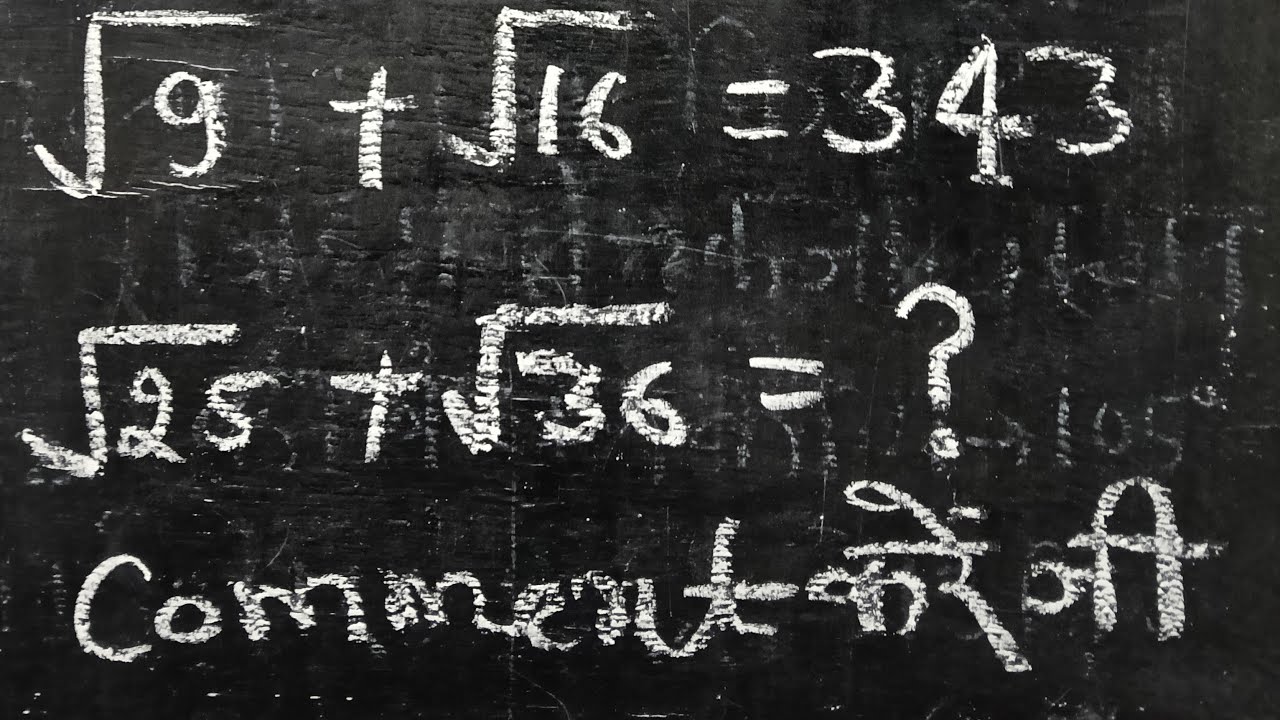 √9 + √16 = 343
√25 + √36 = ?
Comment करें जी